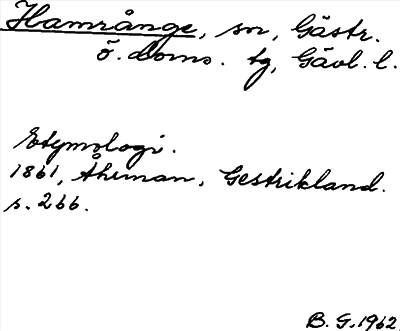 Hamrånge, sn, Gästr.
ö. doms. tg, Gävl. l.
Etymologi.
1861, Åhrman, Gestrikland.
s. 266.
B. G. 1962.